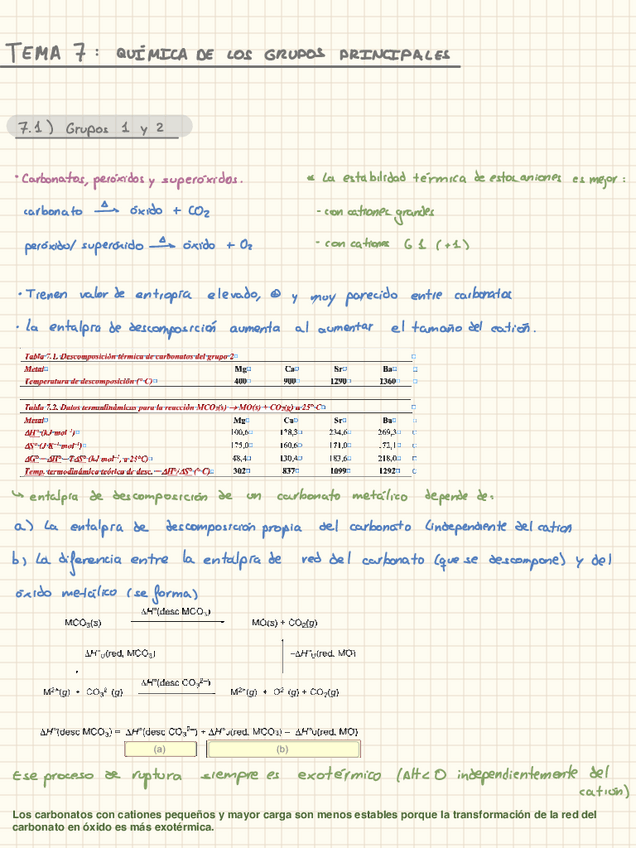 TEMA 7: QUÍMICA DE LOS GRUPOS PRINCIPALES
7.1) Grupos 1 y 2
· Carbonatos, peróxidos y superóxidos.
carbonato —Δ→ óxido + CO₂
peróxido/ superóxido —Δ→ óxido + O₂
* La estabilidad térmica de estos aniones es mejor:
- con cationes grandes
- con cationes G1 (+1)
· Tienen valor de entropía elevado, ⊕ y muy parecido entre carbonatos
· La entalpía de descomposición aumenta al aumentar el tamaño del catión.
Tabla 7.1. Descomposición térmica de carbonatos del grupo 2
Metal Mg Ca Sr Ba
Temperatura de descomposición (° C) 400 900 1290 1360
Tabla 7.2. Datos termodinámicos para la reacción MCO₃(s) → MO(s) + CO₂(g) a 25° C
Metal Mg Ca Sr Ba
ΔH° (kJ mol⁻¹) 100,6 178,3 234,6 269,3
ΔS° (J K⁻¹ mol⁻¹) 175,0 160,6 171,0
ΔG° = ΔH° - TΔS° (kJ mol⁻¹, a 25°C) 48,4 130,4 183,6 218,0
Temp. termodinámica teórica de desc. = ΔH°/ΔS° (° C) 302 837 1099 1292
↳ entalpía de descomposición de un carbonato metálico depende de:
a) La entalpía de descomposición propia del carbonato (independiente del catión
b) La diferencia entre la entalpía de red del carbonato (que se descompone) y del
óxido metálico (se forma)
ΔH°(desc MCO₃)
MCO₃(s) MO(s) + CO₂(g)
ΔH°ᵤ(red, MCO₃) −ΔH°ᵤ(red, MO)
ΔH°(desc CO₃²⁻)
M²⁺(g) + CO₃²⁻(g) M²⁺(g) + O²⁻(g) + CO₂(g)
ΔH°(desc MCO₃) = ΔH°(desc CO₃²⁻) + ΔH°ᵤ(red, MCO₃) − ΔH°ᵤ(red, MO)
(a) (b)
Ese proceso de ruptura siempre es exotérmico (ΔH<0 independientemente del
catión)
Los carbonatos con cationes pequeños y mayor carga son menos estables porque la transformación de la red del
carbonato en óxido es más exotérmica.